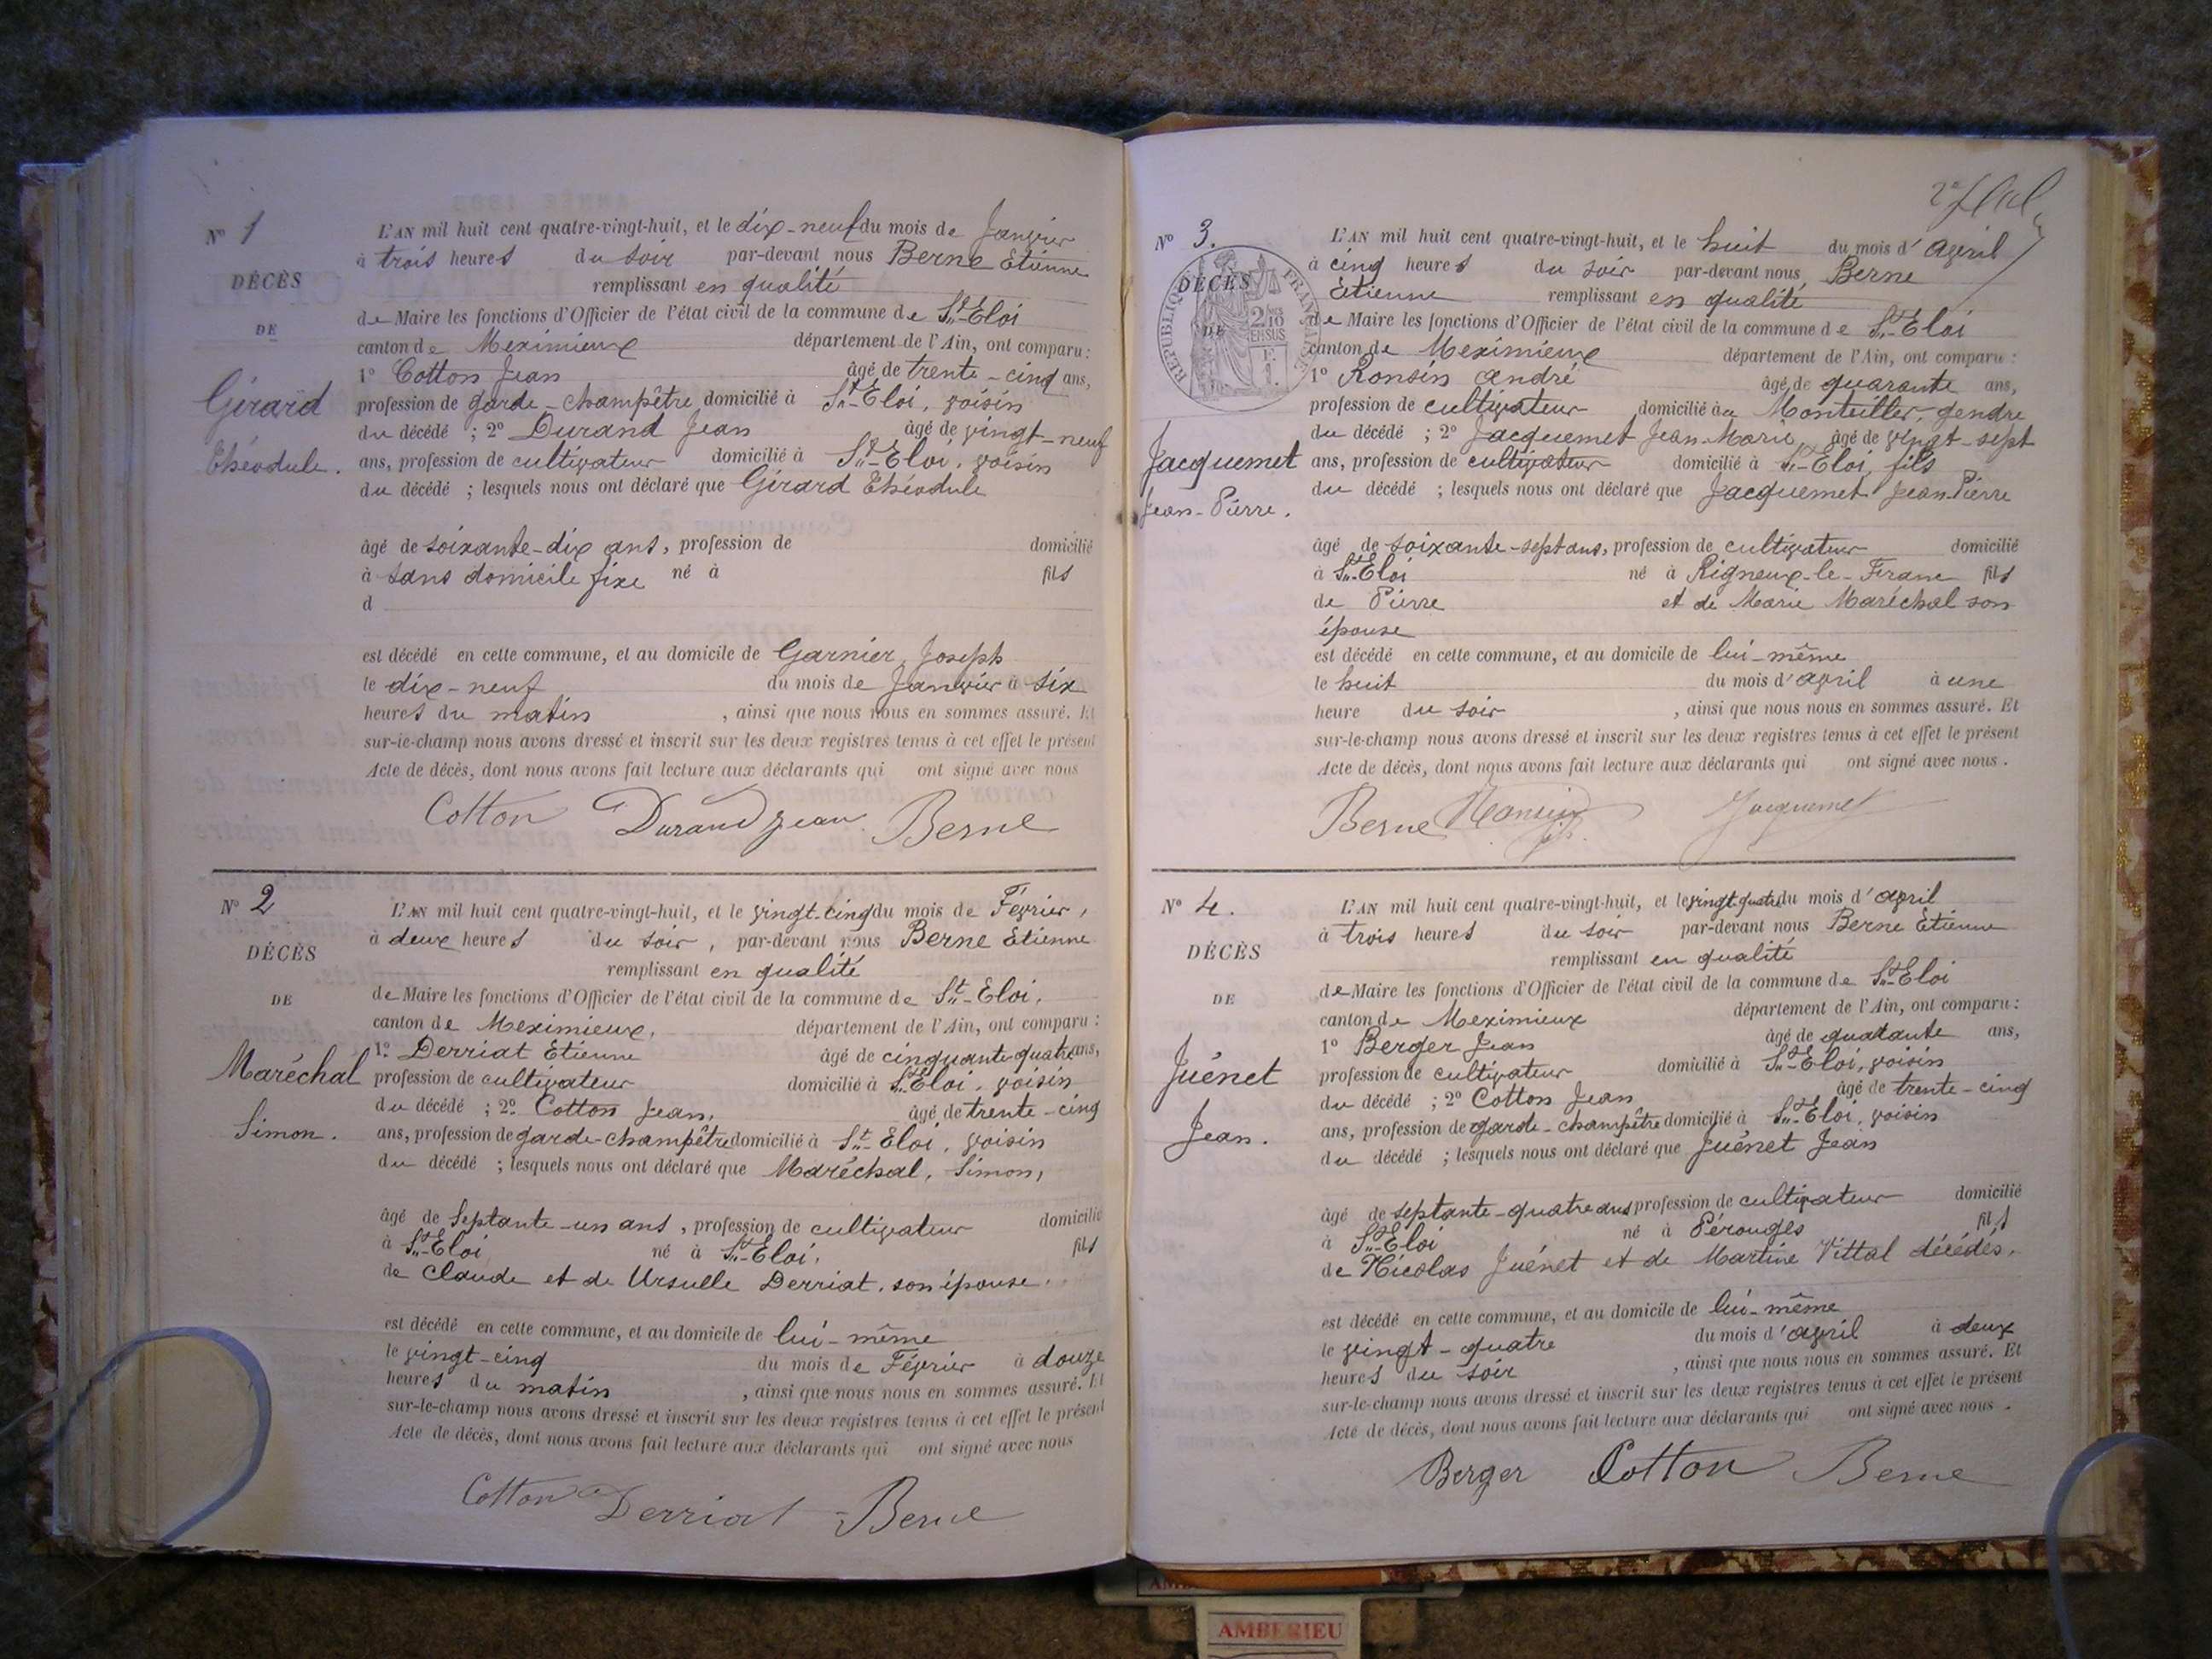 Nº 1
DÉCÈS
DE
Girard
Théodule.
L'AN mil huit cent quatre-vingt-huit, et le dix-neuf du mois de Janvier
à trois heures du soir par-devant nous Berne Etienne
remplissant en qualité
de Maire les fonctions d'Officier de l'état civil de la commune de St-Eloi
canton de Meximieux département de l'Ain, ont comparu :
1º Cotton Jean âgé de trente-cinq ans,
profession de garde-champêtre domicilié à St-Eloi, voisin
du décédé ; 2º Durand Jean âgé de vingt-neuf
ans, profession de cultivateur domicilié à St-Eloi, voisin
du décédé ; lesquels nous ont déclaré que Girard Théodule
âgé de soixante-dix ans, profession de domicilié
à sans domicile fixe né à fils
d
est décédé en cette commune, et au domicile de Garnier Joseph
le dix-neuf du mois de Janvier à six
heures du matin , ainsi que nous nous en sommes assuré. Et
sur-le-champ nous avons dressé et inscrit sur les deux registres tenus à cet effet le présent
Acte de décès, dont nous avons fait lecture aux déclarants qui ont signé avec nous
Cotton Durand Jean Berne
Nº 2
DÉCÈS
DE
Maréchal
Simon.
L'AN mil huit cent quatre-vingt-huit, et le vingt-cinq du mois de Février,
à deux heures du soir, par-devant nous Berne Etienne
remplissant en qualité
de Maire les fonctions d'Officier de l'état civil de la commune de St-Eloi,
canton de Meximieux, département de l'Ain, ont comparu :
1º Derriat Etienne âgé de cinquante-quatre ans,
profession de cultivateur domicilié à St-Eloi, voisin
du décédé ; 2º Cotton Jean, âgé de trente-cinq
ans, profession de garde-champêtre domicilié à St-Eloi, voisin
du décédé ; lesquels nous ont déclaré que Maréchal, Simon,
âgé de septante-un ans, profession de cultivateur domicilié
à St-Eloi né à St-Eloi, fils
de Claude et de Ursulle Derriat, son épouse.
est décédé en cette commune, et au domicile de lui-même
le vingt-cinq du mois de Février à douze
heures du matin , ainsi que nous nous en sommes assuré. Et
sur-le-champ nous avons dressé et inscrit sur les deux registres tenus à cet effet le présent
Acte de décès, dont nous avons fait lecture aux déclarants qui ont signé avec nous
Cotton Derriat Berne
Nº 3.
DÉCÈS
DE
RÉPUBLIQUE FRANÇAISE
Jacquemet
Jean-Pierre.
L'AN mil huit cent quatre-vingt-huit, et le huit du mois d'avril
à cinq heures du soir par-devant nous Berne
Etienne remplissant en qualité
de Maire les fonctions d'Officier de l'état civil de la commune de St-Eloi
canton de Meximieux département de l'Ain, ont comparu :
1º Ronsin André âgé de quarante ans,
profession de cultivateur domicilié au Montellier, gendre
du décédé ; 2º Jacquemet Jean-Marie, âgé de vingt-sept
ans, profession de cultivateur domicilié à St-Eloi, fils
du décédé ; lesquels nous ont déclaré que Jacquemet Jean-Pierre
âgé de soixante-sept ans, profession de cultivateur domicilié
à St-Eloi né à Rigneux-le-Franc fils
de Pierre et de Marie Maréchal son
épouse
est décédé en cette commune, et au domicile de lui-même
le huit du mois d'avril à une
heure du soir , ainsi que nous nous en sommes assuré. Et
sur-le-champ nous avons dressé et inscrit sur les deux registres tenus à cet effet le présent
Acte de décès, dont nous avons fait lecture aux déclarants qui ont signé avec nous.
Berne Ronsin Jacquemet
Nº 4.
DÉCÈS
DE
Juénet
Jean.
L'AN mil huit cent quatre-vingt-huit, et le vingt-quatre du mois d'avril
à trois heures du soir par-devant nous Berne Etienne
remplissant en qualité
de Maire les fonctions d'Officier de l'état civil de la commune de St-Eloi
canton de Meximieux département de l'Ain, ont comparu :
1º Berger Jean âgé de quarante ans,
profession de cultivateur domicilié à St-Eloi, voisin
du décédé ; 2º Cotton Jean âgé de trente-cinq
ans, profession de garde-champêtre domicilié à St-Eloi, voisin
du décédé ; lesquels nous ont déclaré que Juénet Jean
âgé de septante-quatre ans profession de cultivateur domicilié
à St-Eloi né à Pérouges fils
de Nicolas Juénet et de Martine Vittal décédés.
est décédé en cette commune, et au domicile de lui-même
le vingt-quatre du mois d'avril à deux
heures du soir , ainsi que nous nous en sommes assuré. Et
sur-le-champ nous avons dressé et inscrit sur les deux registres tenus à cet effet le présent
Acte de décès, dont nous avons fait lecture aux déclarants qui ont signé avec nous.
Berger Cotton Berne
AMBERIEU